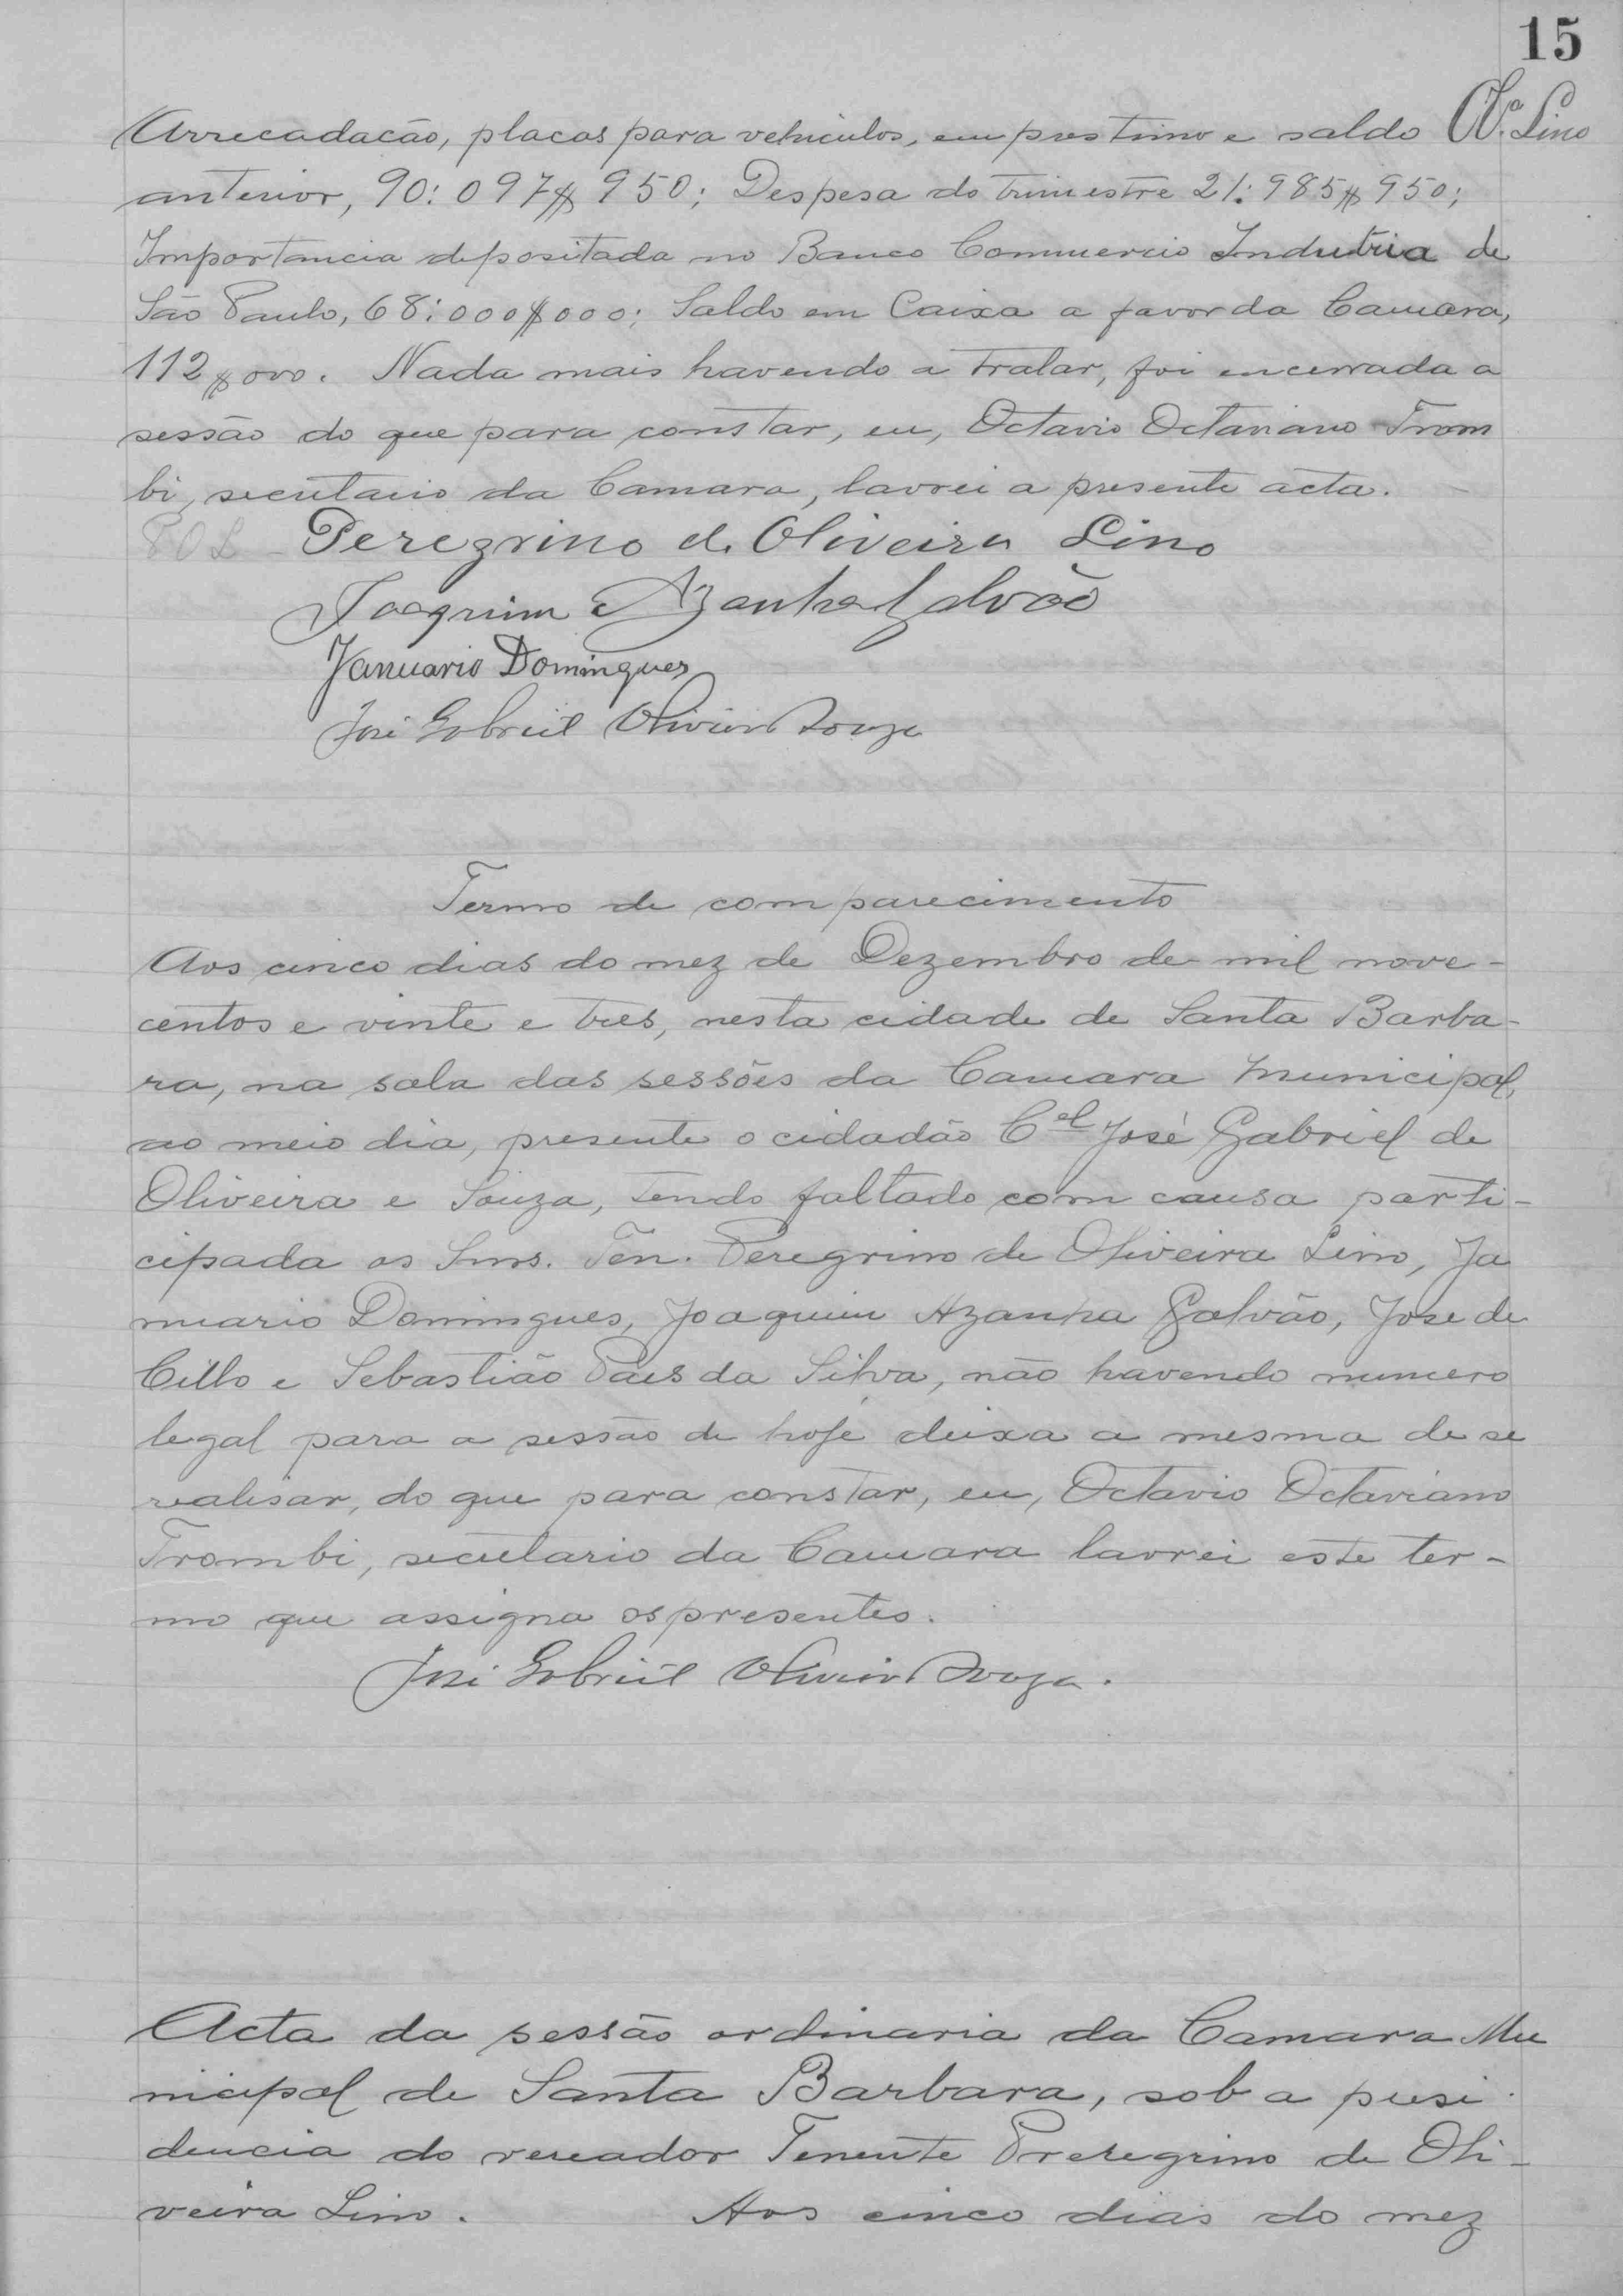 15
Ol.ª Lino
Arrecadacão, placas para vehiculos, emprestimo e saldo
anterior, 90:097$950; Despesa do trimestre 21:985$950;
Importancia depositada no Banco Commercio Indutria de
São Paulo, 68:000$000; Saldo em Caixa a favor da Camara,
112$000. Nada mais havendo a tratar, foi encerrada a
sessão do que para constar, eu, Octavio Octaviano Trom
bi, secretario da Camara, lavrei a presente acta.
Peregrino d. Oliveira Lino
Joaquim Azanha Galvão
Januario Domingues
José Gabriel Oliveira Souza
Termo de comparecimento
Aos cinco dias do mez de Dezembro de mil nove-
centos e vinte e tres, nesta cidade de Santa Barba-
ra, na sala das sessões da Camara Municipal,
ao meio dia, presente o cidadão Cel José Gabriel de
Oliveira e Souza, tendo faltado com causa parti-
cipada os Snrs. Ten. Peregrino de Oliveira Lino, Ja
nuario Domingues, Joaquim Azanha Galvão, José de
Cillo e Sebastião Paes da Silva, não havendo numero
legal para a sessão de hoje deixa a mesma de se
realisar, do que para constar, eu, Octavio Octaviano
Trombi, secretario da Camara lavrei este ter-
mo que assigna os presentes.
José Gabriel Oliveira Souza.
Acta da sessão ordinaria da Camara Mu
nicipal de Santa Barbara, sob a presi
dencia do vereador Tenente Preregrino de Oli-
veira Lino. Aos cinco dias do mez